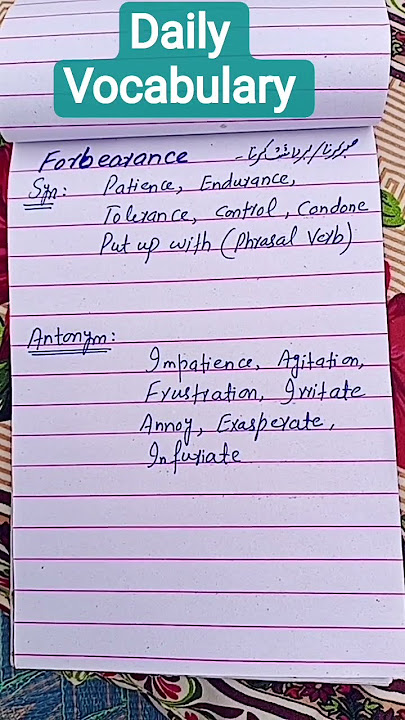 Daily
Vocabulary
Forbearance صبر کرنا/برداشت کرنا -
Syn: Patience, Endurance,
Tolerance, Control, Condone
Put up with (Phrasal Verb)
Antonym:
Impatience, Agitation,
Frustration, Irritate
Annoy, Exasperate,
Infuriate